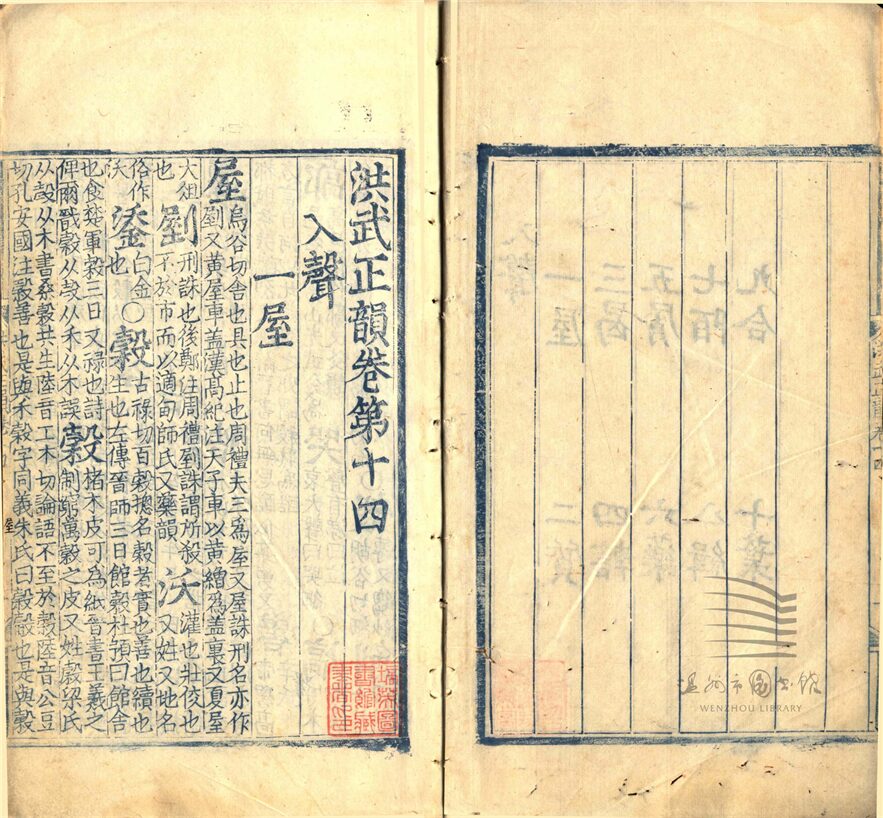 温州市図书館
WENZHOU LIBRARY
洪武正韻卷第十四
入聲
一屋
屋烏谷切舍也具也止也周禮夫三為屋又屋誅刑名亦作
剭又黃屋車蓋漢髙紀注天子車以黃繒為蓋裏又夏屋
大俎也剭刑誅也後鄭注周禮剭誅謂所殺不於市而以適甸師氏又藥韻沃灌也壯佼也又姓又地名
俗作沃鋈白金也○穀古祿切百穀摠名穀者實也善也續也生也左傳晉師三日館穀杜預曰館舍
也食楚軍穀三日又祿也詩俾爾戩穀从㱿从禾从木誤榖楮木皮可為紙晉書王羲之制竆萬穀之皮又姓穀梁氏
从㱿从木書桑穀共生陸音工木切論語不至於穀陸音公豆
切孔安國注穀善也是與禾穀字同義朱氏曰穀㱿也是與穀
屋